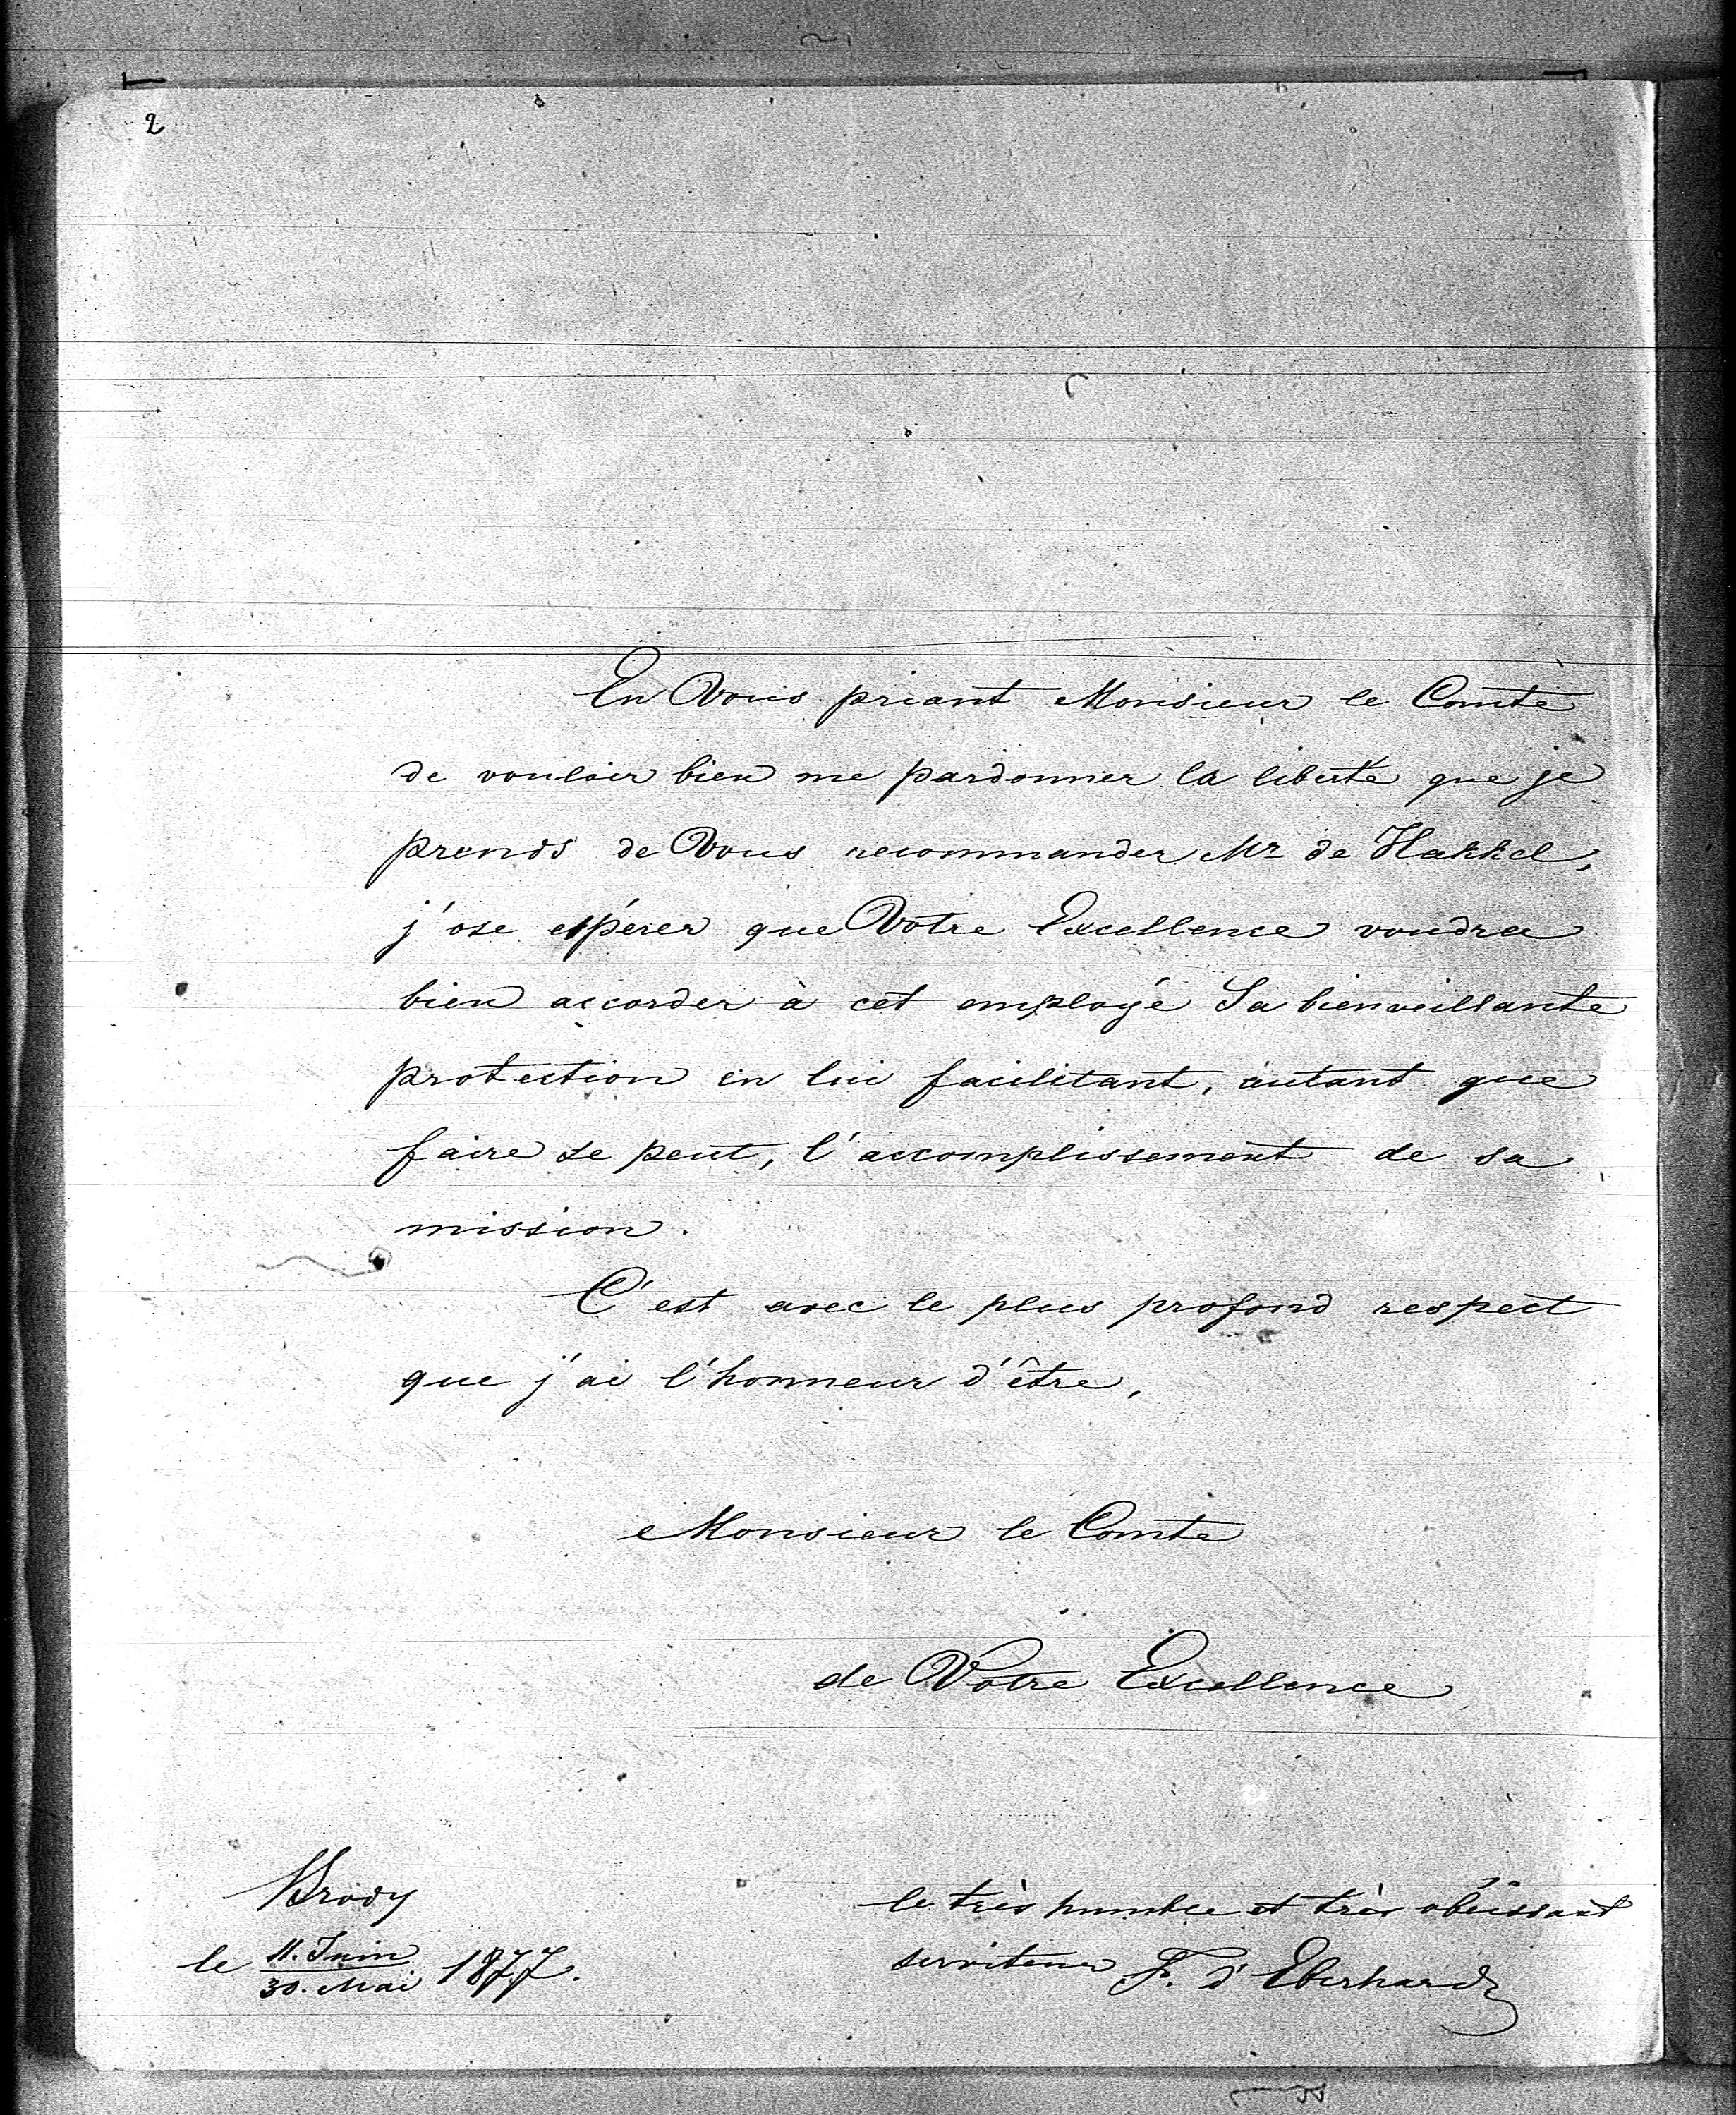 2
En Vous priant Monsieur le Comte
de vouloir bien me pardonner la liberté que je
prends de Vous recommander Mr de Hakkel,
j'ose espérer que Votre Excellence voudra
bien accorder à cet employé Sa bienveillante
protection en lui facilitant, autant que
faire se peut, l'accomplissement de sa
mission.
C'est avec le plus profond respect
que j'ai l'honneur d'être,
Monsieur le Comte
de Votre Excellence
le très humble et très obéissant
serviteur F. d'Eberhard
Brody
le 11. Juin / 30. Mai 1877.